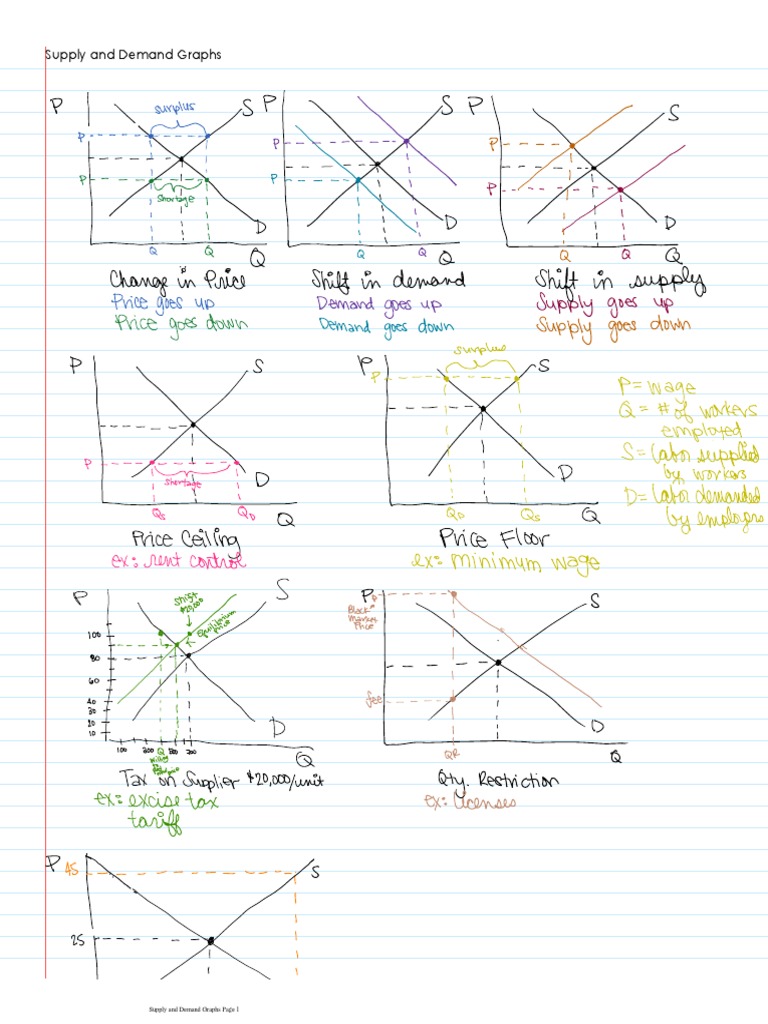 Supply and Demand Graphs
P S P S P S
surplus
P P P
P P P
shortage
D D D
Q Q Q Q Q Q Q Q Q
Change in Price Shift in demand Shift in supply
Price goes up Demand goes up Supply goes up
Price goes down Demand goes down Supply goes down
surplus
P S P S
P
P= wage
Q = # of workers
employed
S= Labor supplied
by workers
D= Labor demanded
by employers
P
shortage
D D
Qs QD Q QD Qs Q
Price Ceiling Price Floor
ex: rent control ex: minimum wage
P S P P S
shift
$20,000
Equilibrium
price
Black
Market
Price
100
80
60
40 fee
30
20
10
D D
100 200 Q 300
QR
Q Q
Tax on Supplier $20,000/unit Qty. Restriction
ex: excise tax ex: Licenses
tariff
P 45 S
25
Supply and Demand Graphs Page 1